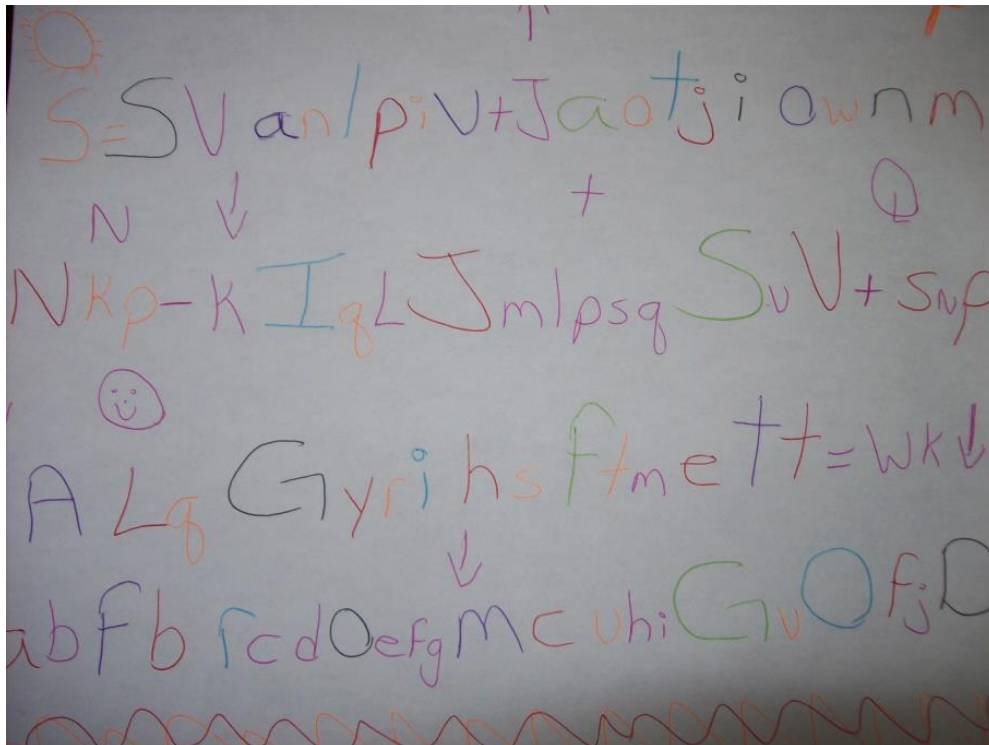 S=SVanlpiV+Jaotjiownm
N + Q
Nkp-kIqLJmlpsqSvV+sNp
ALqGyrihsftmett=wk↓
abfbrcdOefgmcuhiGvOfjD